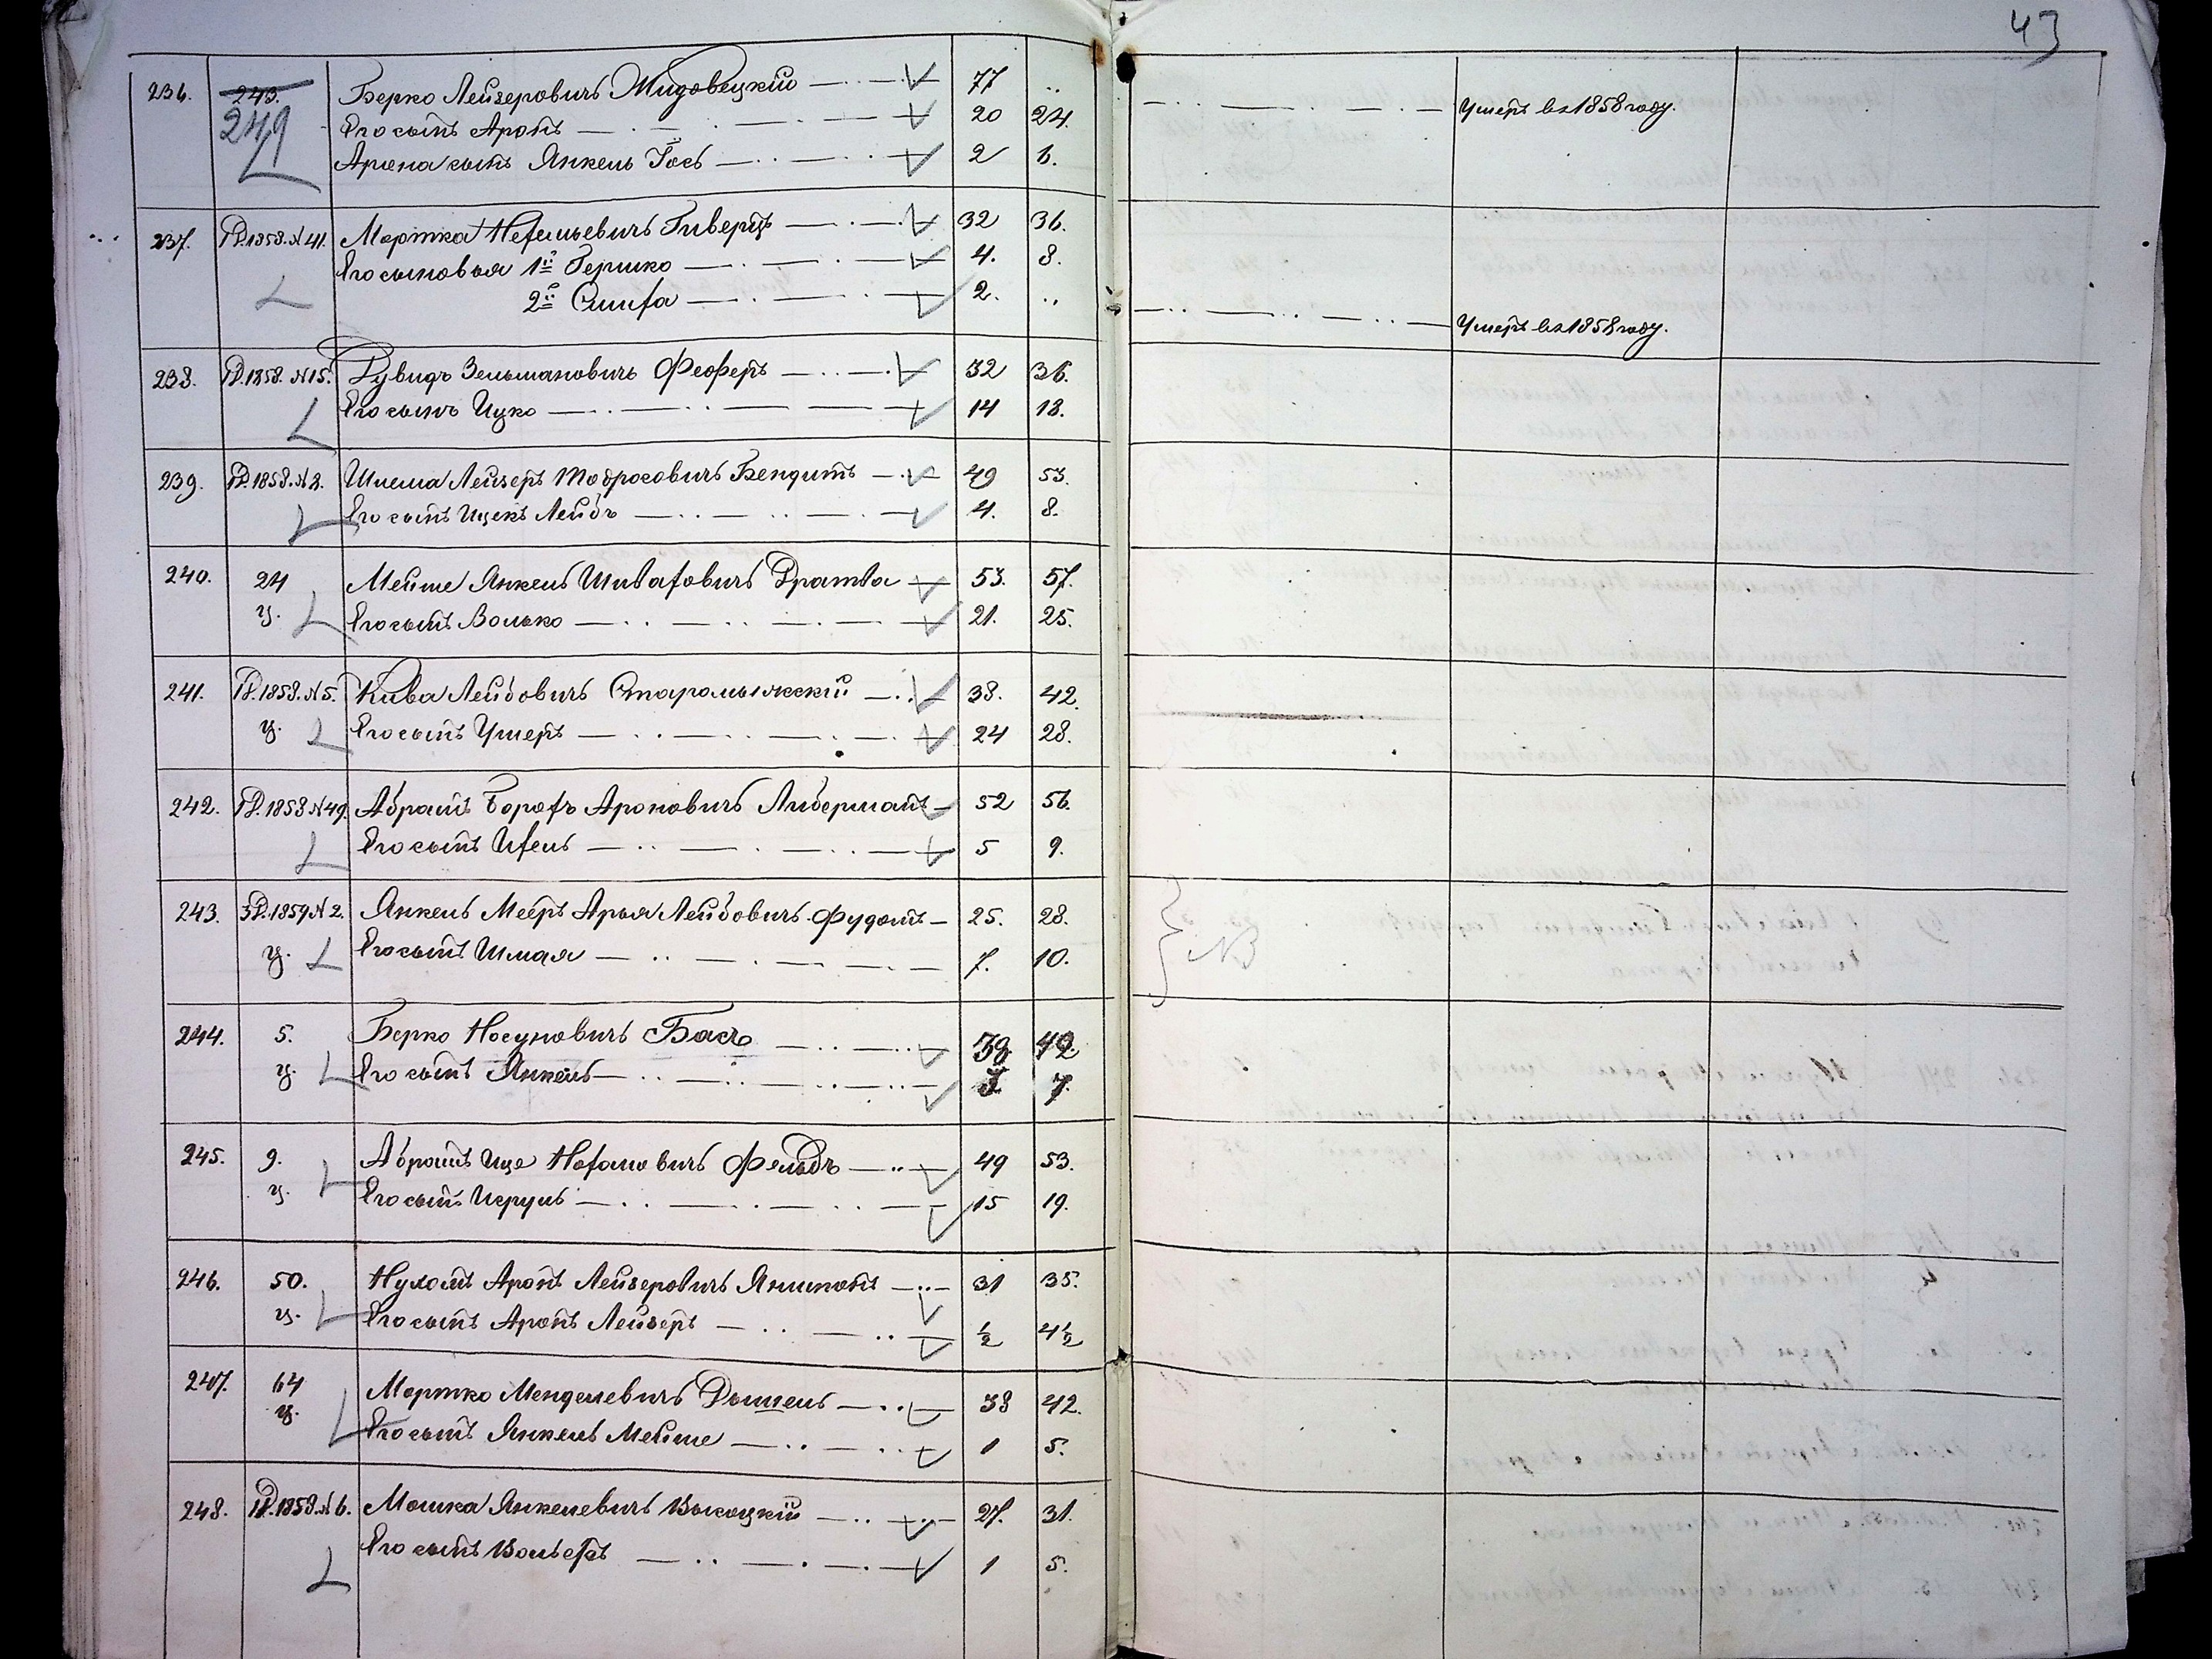 43
236. 243. Берко Лейзеровичъ Мидовецкій 77 ..
249 Его сынъ Аронъ 20 24.
Арона сынъ Янкель Іось 2 6.
Умеръ въ 1858 году.
237. Р.1858.N 41. Мортка Нефтульевичъ Гиверцъ 32 36.
Его сыновья 1й Гершко 4. 8.
2й Сруль 2. ..
Умеръ въ 1858 году.
238. Р.1858. N 15. Рувидъ Зельмановичъ Феферъ 32 36.
Его сынъ Ицко 14 18.
239. Р.1858. N 2. Шлема Лейзеръ Тодросовичъ Бендитъ 49 53.
Его сынъ Ицекъ Лейбъ 4. 8.
240. 24 Мейше Янкель Братва 53. 57.
у. Его сынъ Волько 21. 25.
241. Р.1858. N 5. Кива Лейбовичъ 38. 42.
у. Его сынъ Ушеръ 24 28.
242. Р.1858 N 49. Абрамъ Борохъ Ароновичъ Либерманъ 52 56.
Его сынъ 5 9.
243. 3Р.1859 N 2. Янкель Мееръ Арья Лейбовичъ Фудымъ 25. 28.
у. Его сынъ Шмая 7. 10.
NB
244. 5. Берко Носуновичъ Басъ 38 42.
у. Его сынъ Янкель 3 7.
245. 9. Абрамъ Ице Фельдъ 49 53.
у. Его сынъ Исруль 15 19.
246. 50. Нухомъ Аронъ Лейзеровичъ 31 35.
у. Его сынъ Аронъ Лейзеръ ½ 4½
247. 64 Мортко Менделевичъ 38 42.
у. Его сынъ Янкель Мейше 1 5.
248. 1Р.1858.N 6. Мошка Янкелевичъ Высоцкій 27. 31.
Его сынъ 1 5.